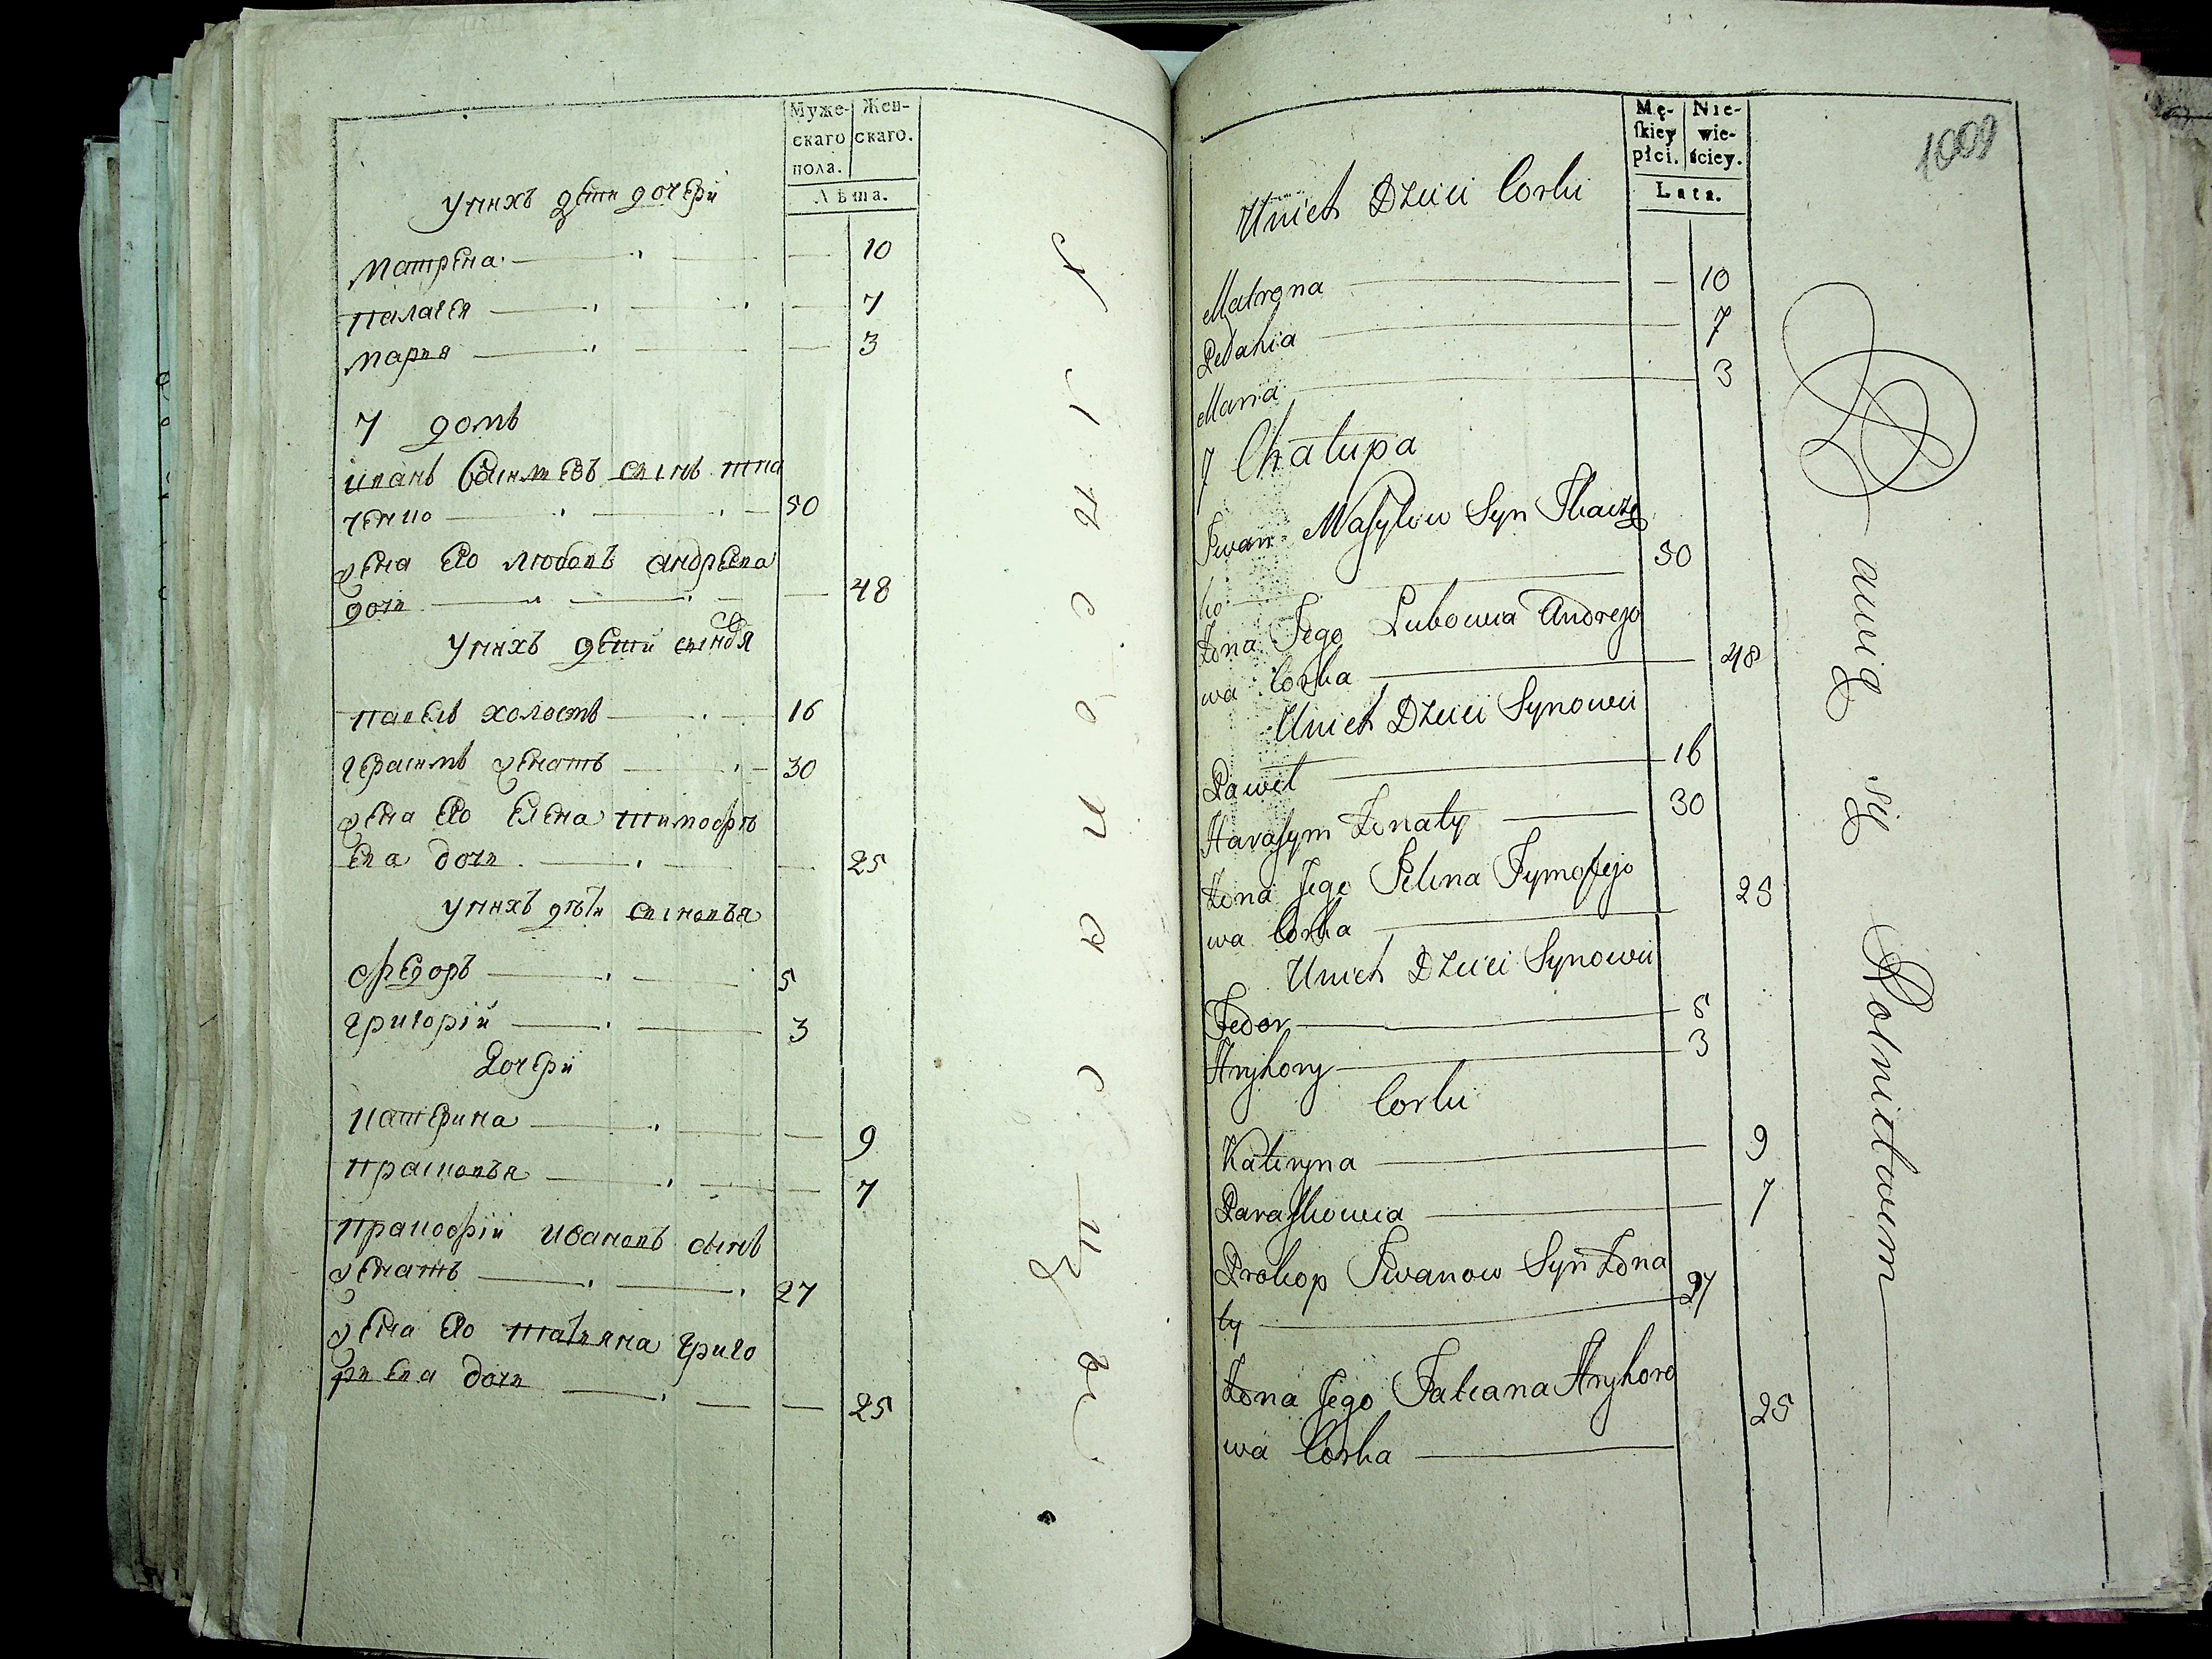 Муже-
скаго
пола.
Жен-
скаго.
Лѣта.
Унихъ дети дочери
Матрена 10
палагея 7
мария 3
7 домъ
иванъ Василевъ сынъ тка
ченко 50
жена его любовъ андреева
дочь 48
Унихъ дети сыновя
павелъ холостъ 16
герасимъ женатъ 30
жена его елена тимофѣ
ева дочь 25
унихъ дѣти сыновья
федоръ 5
григорій 3
Дочери
катерина 9
прасковья 7
пракофій ивановъ сынъ
женатъ 27
жена его татьяна григо
рьева дочь 25
Mę-
skiey
płci.
Nie-
wie-
ściey.
Lata.
1009
Unich Dzieci Corki
Matrona 10
Pelahia 7
Maria 3
7 Chałupa
Iwan Wasylow Syn Tkacze
ko 50
Żona Jego Lubowia Andrejo
wa Corka 48
Unich Dzieci Synowie
Paweł 16
Harasym Żonaty 30
Żona Jego Jelena Tymofejo
wa Corka 25
Unich Dzieci Synowie
Fedor 5
Hryhory 3
Corki
Kateryna 9
Paraskowia 7
Prokop Iwanow Syn Żona
ty 27
Żona Jego Tatiana Hryhoro
wa Corka 25
awią się Rolnictwem